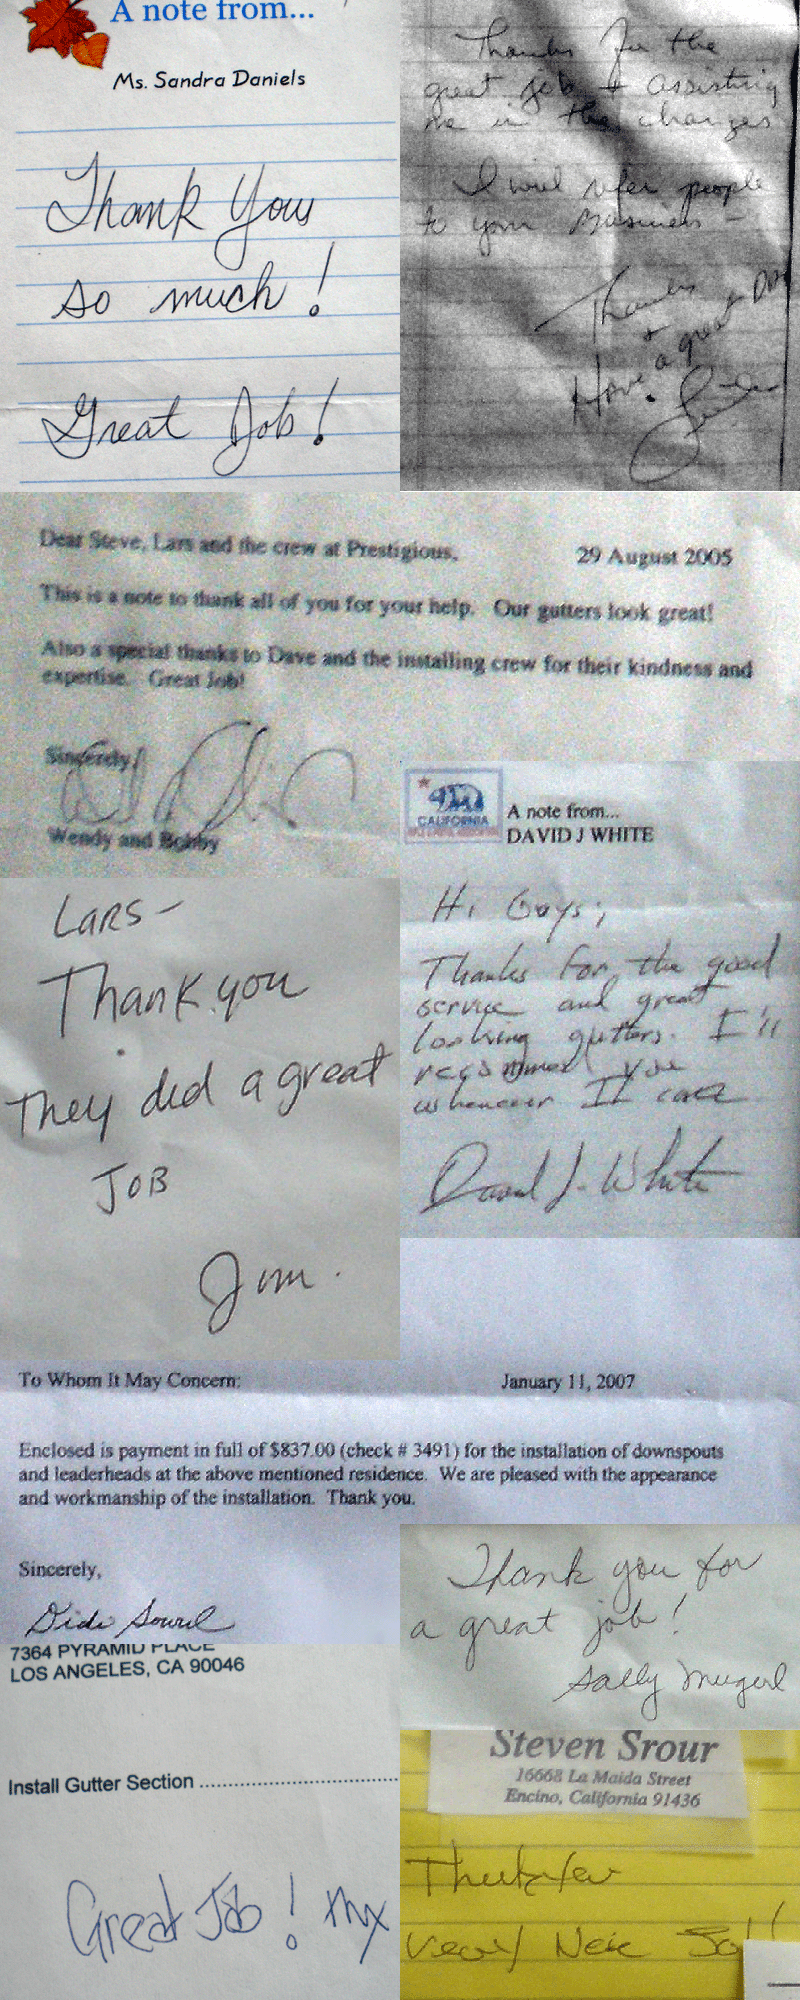 A note from...
Ms. Sandra Daniels
Thank You
so much!
Great Job!
Thanks for the
great job + assisting
me in the changes
I will refer people
to your business -
Thanks
+
Have a great Day
Dear Steve, Lars and the crew at Prestigious,
29 August 2005
This is a note to thank all of you for your help. Our gutters look great!
Also a special thanks to Dave and the installing crew for their kindness and
expertise. Great Job!
Sincerely,
Wendy and Bobby
CALIFORNIA
A note from...
DAVID J WHITE
Hi Guys;
Thanks for the good
service and great
looking gutters. I'll
recommend you
whenever I can
David J. White
Lars-
Thank you
They did a great
JOB
Jim.
To Whom It May Concern:
January 11, 2007
Enclosed is payment in full of $837.00 (check # 3491) for the installation of downspouts
and leaderheads at the above mentioned residence. We are pleased with the appearance
and workmanship of the installation. Thank you.
Sincerely,
Thank you for
a great job!
Sally
7364 PYRAMID PLACE
LOS ANGELES, CA 90046
Install Gutter Section ........................................
Great Job! thx
Steven Srour
16668 La Maida Street
Encino, California 91436